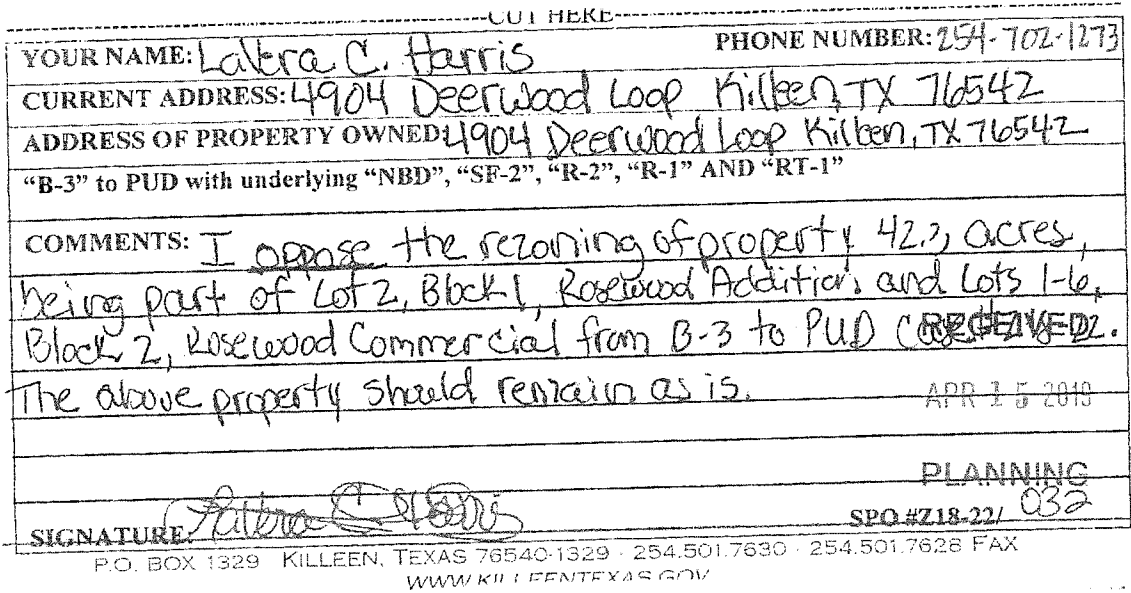 CUT HERE
YOUR NAME: LaVera C. Harris PHONE NUMBER: 254-702-1273
CURRENT ADDRESS: 4904 Deerwood Loop Killeen, TX 76542
ADDRESS OF PROPERTY OWNED: 4904 Deerwood Loop Killeen, TX 76542
“B-3” to PUD with underlying “NBD”, “SF-2”, “R-2”, “R-1” AND “RT-1”
COMMENTS: I oppose the rezoning of property acres,
being part of Lot 2, Block 1, Rosewood Addition and Lots 1-6,
Block 2, Rosewood Commercial from B-3 to PUD
RECEIVED
The above property should remain as is.
APR 15 2019
PLANNING
SIGNATURE: LaVera C Harris SPO #Z18-22/ 032
P.O. BOX 1329 KILLEEN, TEXAS 76540-1329 · 254.501.7630 · 254.501.7628 FAX
WWW.KILLEENTEXAS.GOV